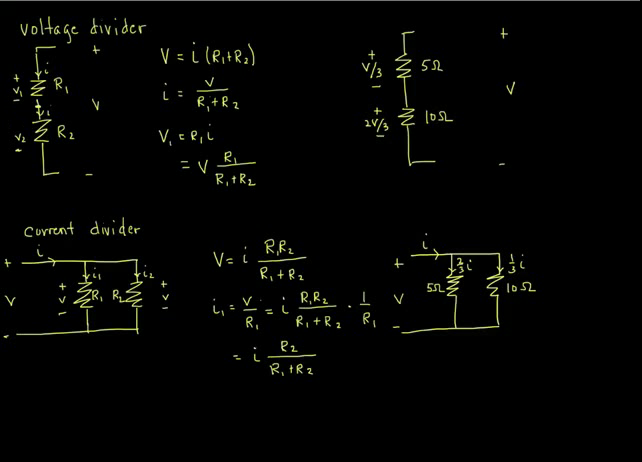 voltage divider
+
i
+
V₁
−
R₁
i
V
V₂
−
R₂
−
V = i (R₁+R₂)
i = V / (R₁+R₂)
V₁ = R₁ i
= V R₁ / (R₁+R₂)
+
+
V/3
−
5Ω
V
+
2V/3
−
10Ω
−
current divider
i
+
i₁
i₂
V
+
V
−
R₁
R₂
+
V
−
−
V = i R₁R₂ / (R₁+R₂)
i₁ = V/R₁ = i R₁R₂ / (R₁+R₂) · 1/R₁
= i R₂ / (R₁+R₂)
i
+
2/3 i
1/3 i
V
5Ω
10Ω
−